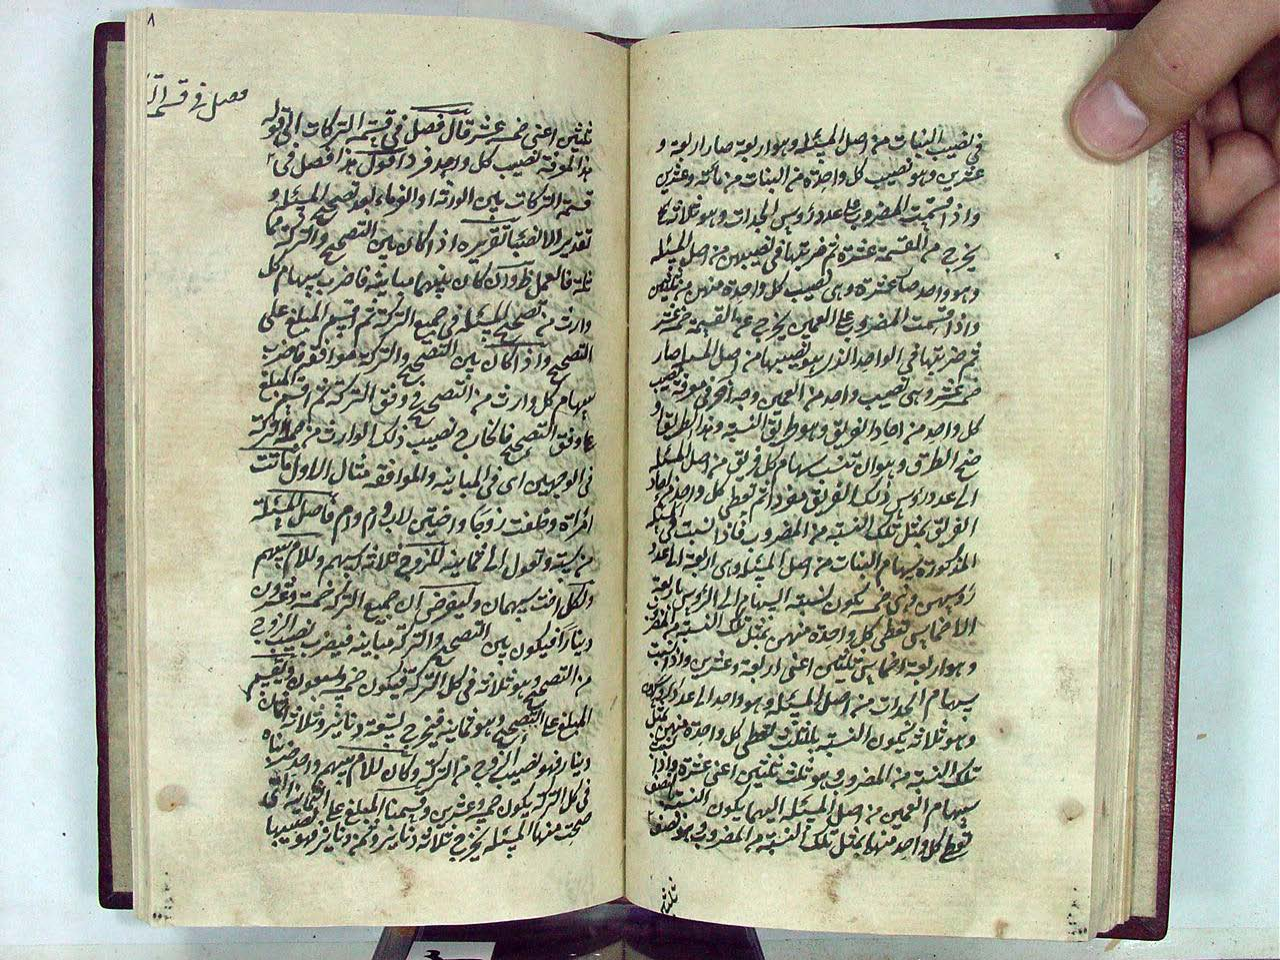 في نصيب البنات من اصل المسئلة وهو اربعة صار اربعة و
عشرين وهو نصيب كل واحدة من البنات من مائة وعشرين
واذا قسمت المضروب على عدد رؤس الجدات وهو ثلاثة
يخرج من القسمة عشرة ثم ضربتها في نصيبهن من اصل المسئلة
وهو واحد صار عشرة وهي نصيب كل واحدة منهن من ثلثين
واذا قسمت المضروب على العمين يخرج من القسمة خمسة عشر
ثم ضربتها في الواحد الذي هو نصيبهما من اصل المسئلة صار
خمسة عشر وهي نصيب واحد من العمين وجه آخر في معرفة نصيب
كل واحد من احاد الفريق وهو طريق النسبة وهذا الطريق او
ضح الطرق وهو ان تنسب سهام كل فريق من اصل المسئلة
الى عدد رؤس ذلك الفريق مفردا ثم تعطى كل واحد من احاد
الفريق بمثل تلك النسبة من المضروب فاذا نسبت في المسئلة
المذكورة سهام البنات من اصل المسئلة وهي اربعة الى عدد
رؤسهن وهي خمسة تكون نسبة السهام الى الرؤس باربعة
الاخماس تعطى كل واحدة منهن بمثل تلك النسبة من المضروب
وهو اربعة اخماس ثلثين اعنى اربعة وعشرين واذا نسبت
سهام الجدات من اصل المسئلة وهو واحد الى عدد رؤسهن
وهو ثلاثة تكون النسبة بالثلث تعطى كل واحدة منهن بمثل
تلك النسبة من المضروب وهو ثلث ثلثين اعنى عشرة واذا نسبت
سهام العمين من اصل المسئلة اليهما يكون النسبة بالنصف
تعطى كل واحد منهما بمثل تلك النسبة من المضروب وهو نصف
ثلثين
٨
فصل في قسمة
ثلثين اعنى خمسة عشر قال فصل في قسمة التركات الى قوله
هذا لمعرفة نصيب كل واحد فرد اقول هذا فصل في
قسمة التركات بين الورثة او الغرماء بعد تصحيح المسئلة و
تقدير الانصباء تقريره اذا كان بين التصحيح والتركة مما
ثلة فالعمل ظ وان كان بينهما مباينة فاضرب سهام كل
وارث من تصحيح المسئلة في جميع التركة ثم اقسم المبلغ على
التصحيح واذا كان بين التصحيح والتركة موافقة فاضرب
سهام كل وارث من التصحيح في وفق التركة ثم اقسم المبلغ
على وفق التصحيح فالخارج نصيب ذلك الوارث من جملة التركة
في الوجهين اى في المباينة والموافقة مثال الاول ماتت
امراة وخلفت زوجا واختين لاب وام وام فاصل المسئلة
من ستة وتعول الى ثمانية للزوج ثلاثة اسهم وللام سهم
ولكل اخت سهمان وليفرض ان جميع التركة خمسة وعشرون
دينارا فيكون بين التصحيح والتركة مباينة فيضرب نصيب الزوج
من التصحيح وهو ثلاثة في كل التركة فيكون خمسة وسبعون ويقسم
المبلغ على التصحيح وهو ثمانية فيخرج تسعة دنانير وثلاثة اثمان
دينار فهو نصيب الزوج من التركة وكان للام سهم واحد ضربناه
في كل التركة يكون خمسة وعشرين وقسمنا المبلغ على الثمانية التي
صحت منها المسئلة يخرج ثلاثة دنانير وثمن دينار فهو نصيبها